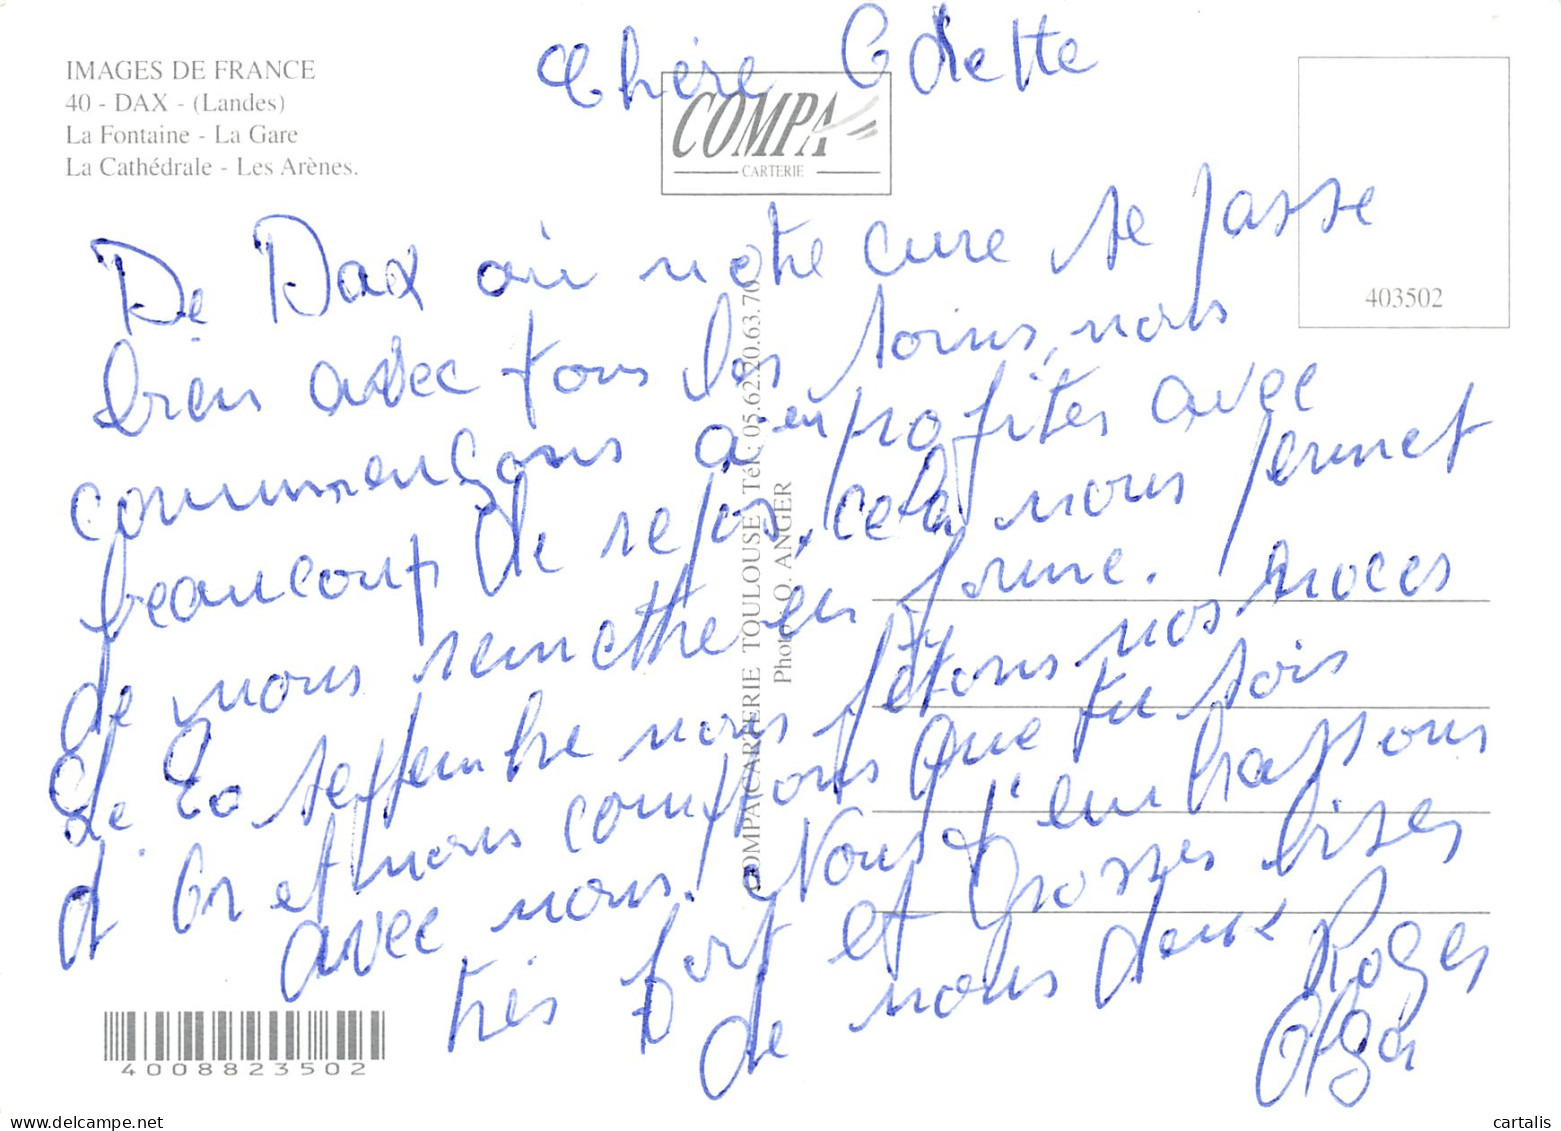 IMAGES DE FRANCE
40 - DAX - (Landes)
La Fontaine - La Gare
La Cathédrale - Les Arènes.
COMPA
CARTERIE
403502
Chère Odette
De Dax où notre cure se passe
bien avec tous les soins, nous
commençons à en profiter avec
beaucoup de repos, cela nous permet
de nous remettre en forme.
Le 20 septembre nous fêtons nos noces
d'or et nous comptons que tu sois
avec nous. Nous t'embrassons
très fort et grosses bises
de nous deux Roger
Olga
COMPA CARTERIE TOULOUSE Tél : 05.62.20.63.70
Photo : O. ANGER
4008823502
www.delcampe.net
cartalis